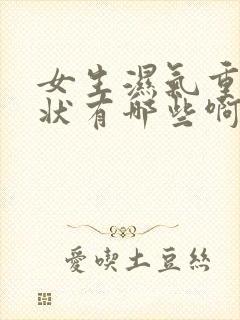 女生濕氣重
狀有哪些啊
愛喫土豆絲